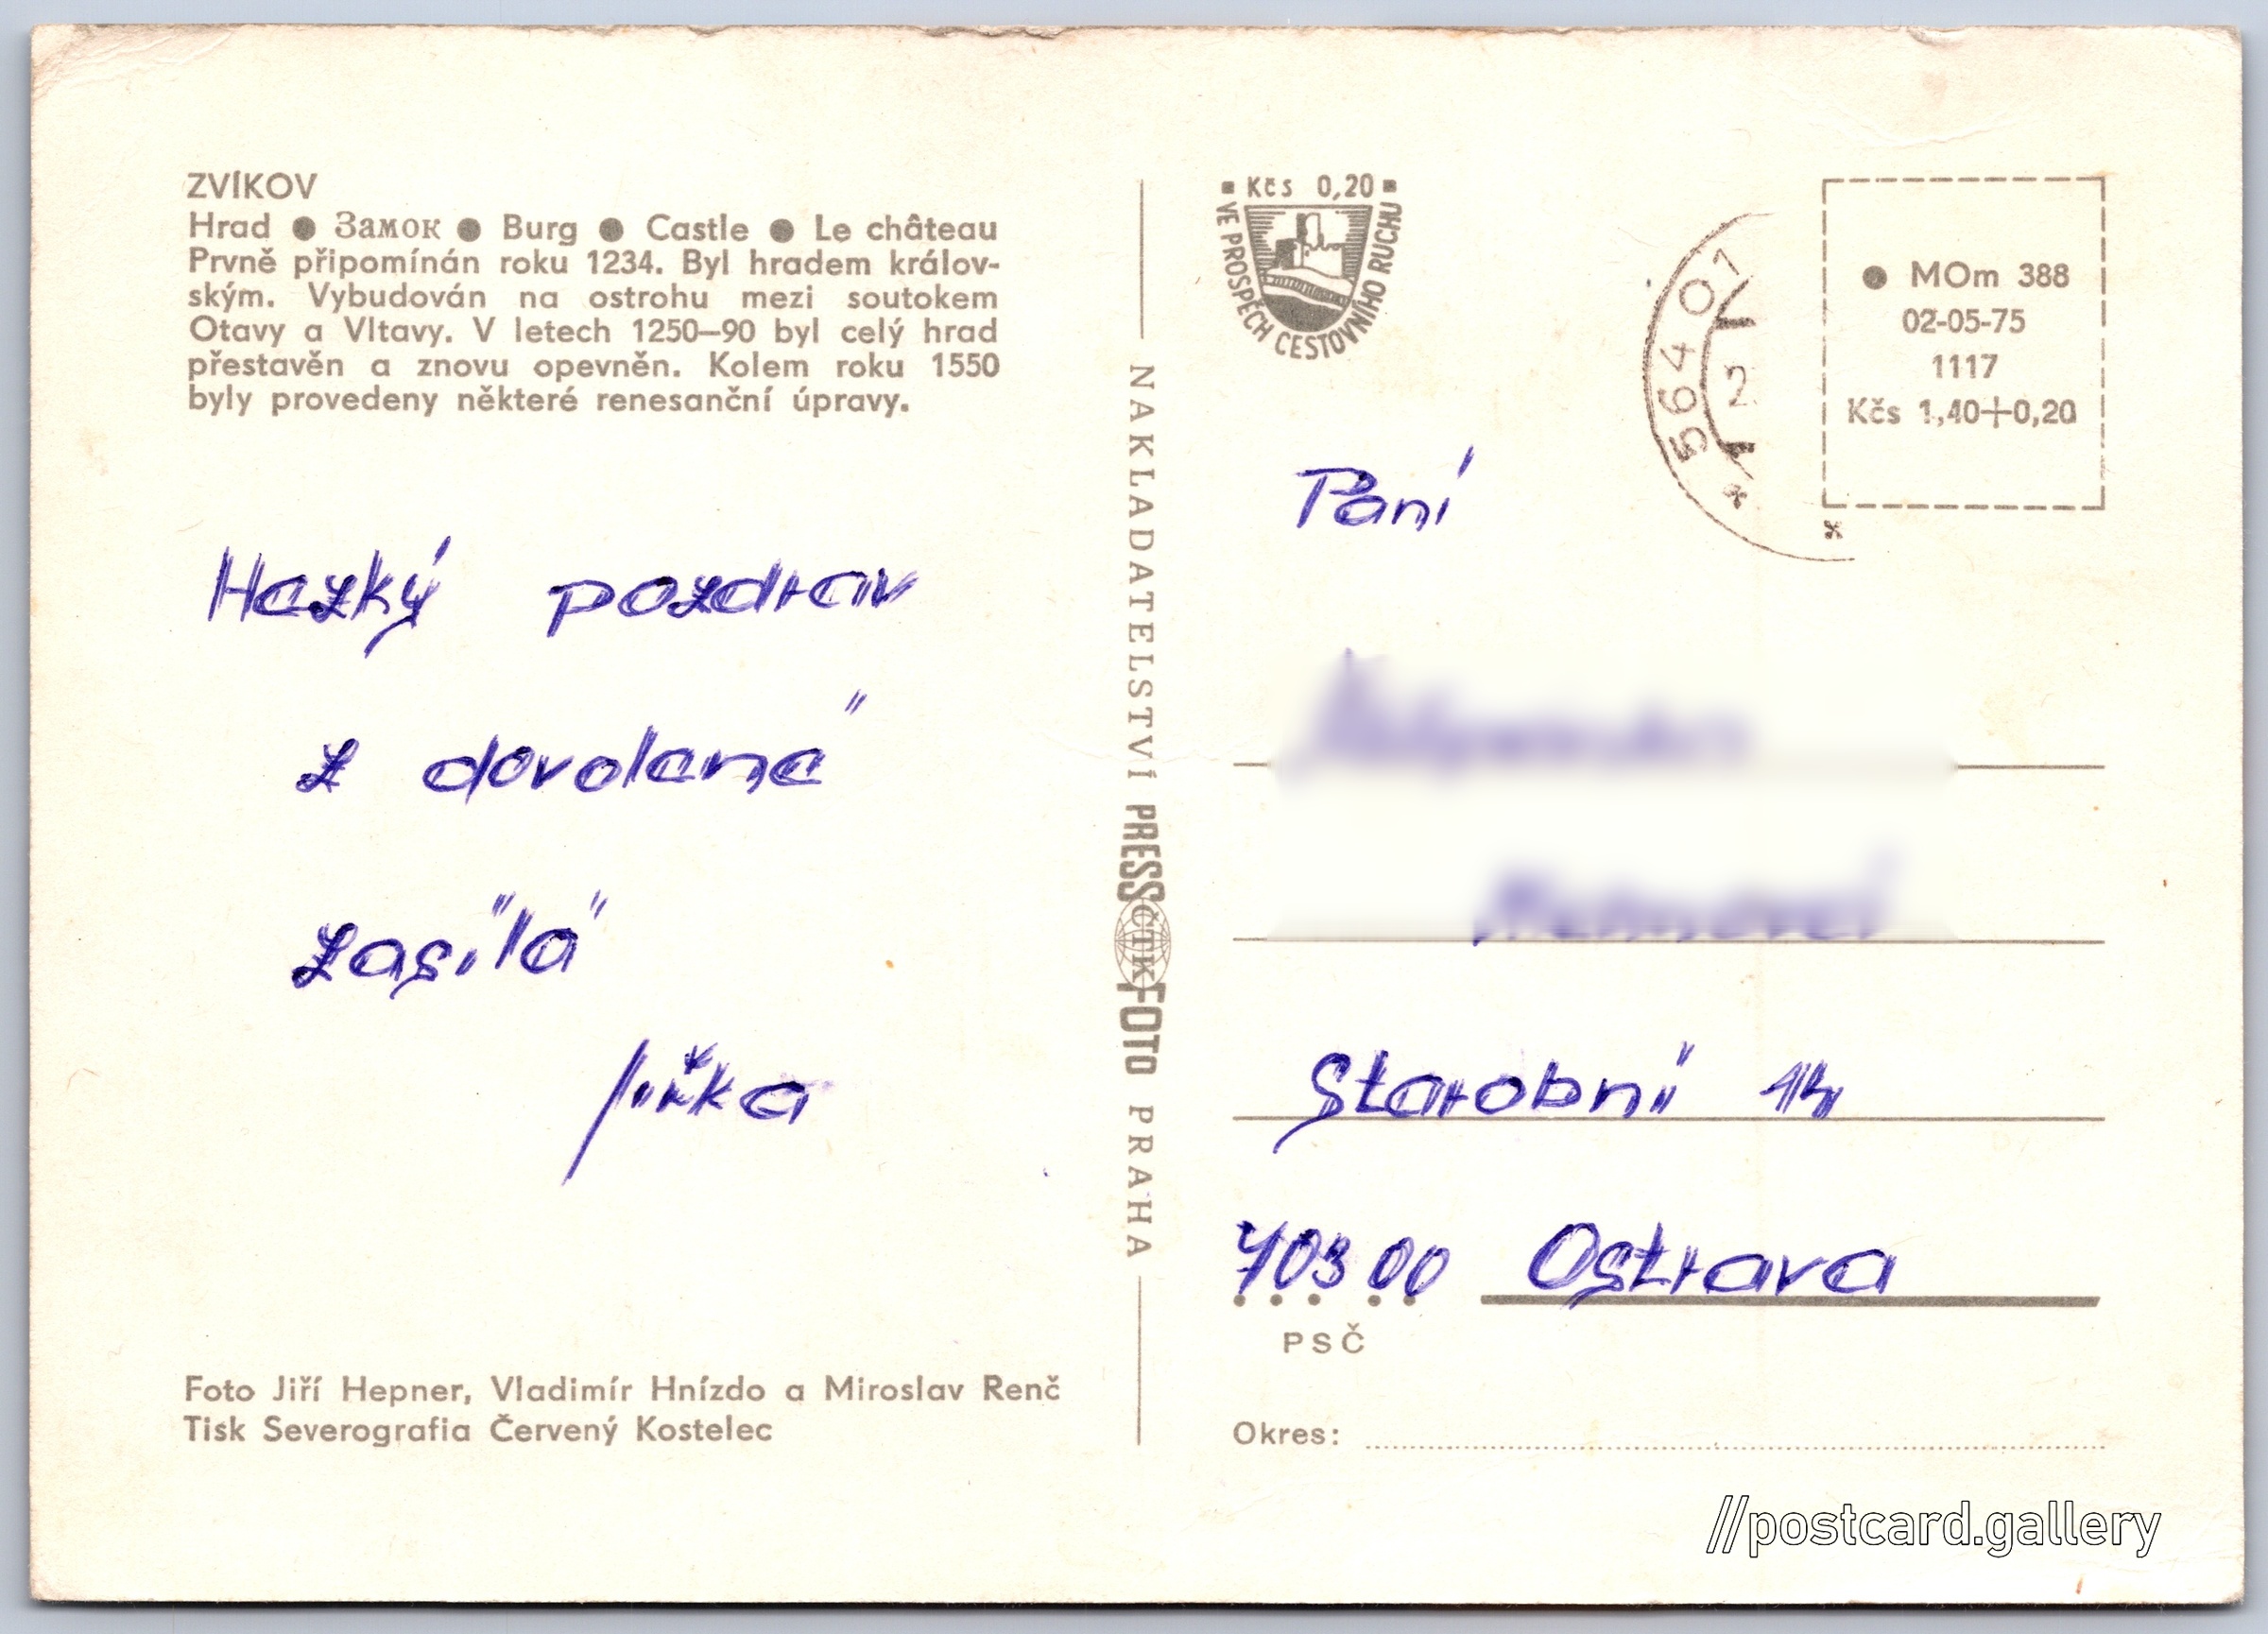 ZVÍKOV
Hrad ● Замок ● Burg ● Castle ● Le château
Prvně připomínán roku 1234. Byl hradem králov-
ským. Vybudován na ostrohu mezi soutokem
Otavy a Vltavy. V letech 1250–90 byl celý hrad
přestavěn a znovu opevněn. Kolem roku 1550
byly provedeny některé renesanční úpravy.
Hezký pozdrav
z dovolené
zasílá
Jiřka
Foto Jiří Hepner, Vladimír Hnízdo a Miroslav Renč
Tisk Severografia Červený Kostelec
NAKLADATELSTVÍ PRESSFOTO PRAHA
ČTK
Kčs 0,20
VE PROSPĚCH CESTOVNÍHO RUCHU
564 01
2
● MOm 388
02-05-75
1117
Kčs 1,40+0,20
Paní
Starobní 14
703 00 Ostrava
PSČ
Okres:
//postcard.gallery